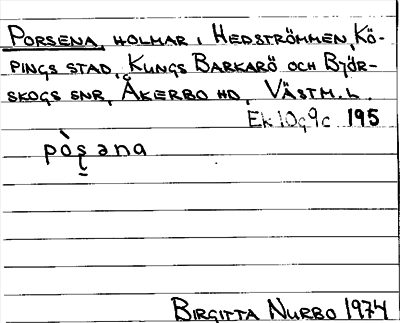 PORSENA, HOLMAR I HEDSTRÖMMEN, KÖ-
PINGS STAD, KUNGS BARKARÖ OCH BJÖR-
SKOGS SNR, ÅKERBO HD, VÄSTM. L.
Ek 10g9c 195
pòʂ̬əna
BIRGITTA NURBO 1974